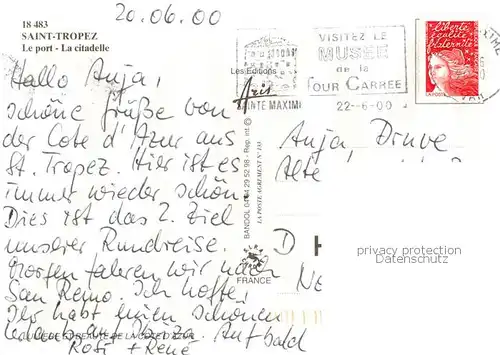 20.06.00
18 483
SAINT-TROPEZ
Le port - La citadelle
Hallo Anja,
schöne Grüße von
der Cote d'Azur aus
St. Tropez. Hier ist es
immer wieder schön.
Dies ist das 2. Ziel
unserer Rundreise.
Morgen fahren wir nach
San Remo. Ich hoffe,
Ihr habt einen schönen
Urlaub auf Ibiza. Auf bald
Rosi + René
Les Editions
Aris
BANDOL 04 94 29 52 98 - Rep. int.
LA POSTE AGREMENT N° 133
FRANCE
SAINTE MAXIM
VISITEZ LE
MUSEE
de la
TOUR CARREE
22-6-00
liberté
égalité
fraternité
LA POSTE
Anja, Druve
D
privacy protection
Datenschutz